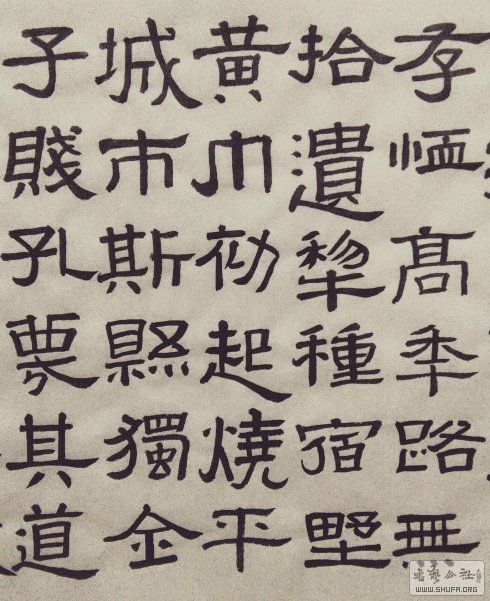 存恤高年路無
拾遺犂種宿野
黃巾初起燒平
城市斯縣獨金
子賤孔蔑其道
书艺公社
WWW.SHUFA.ORG